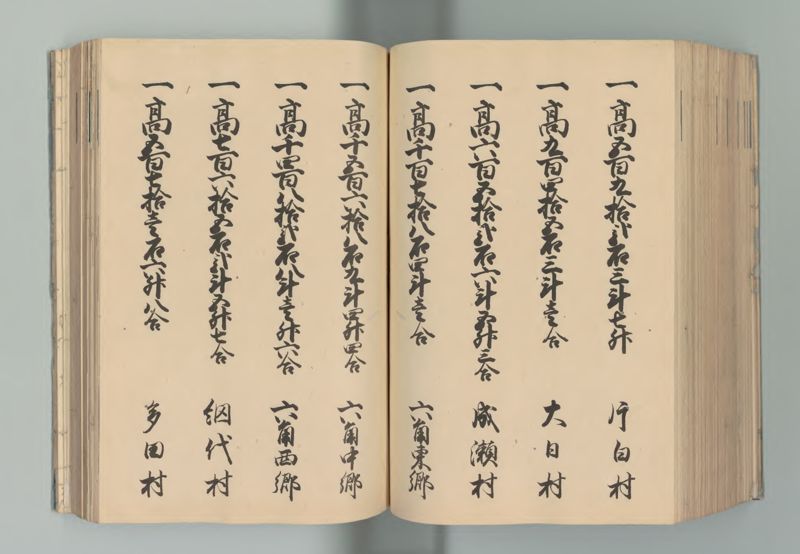 一高五百九拾弐石三斗七升 片白村
一高九百四拾五石三斗壱合 大日村
一高六百五拾弐石六斗五升三合 成瀬村
一高千百七拾八石四斗壱合 六角東郷
一高千五百六拾八石九斗四升四合 六角中郷
一高千四百八拾弐石八斗壱升六合 六角西郷
一高七百六拾五石弐斗五升七合 網代村
一高五百七拾壱石六升八合 多田村